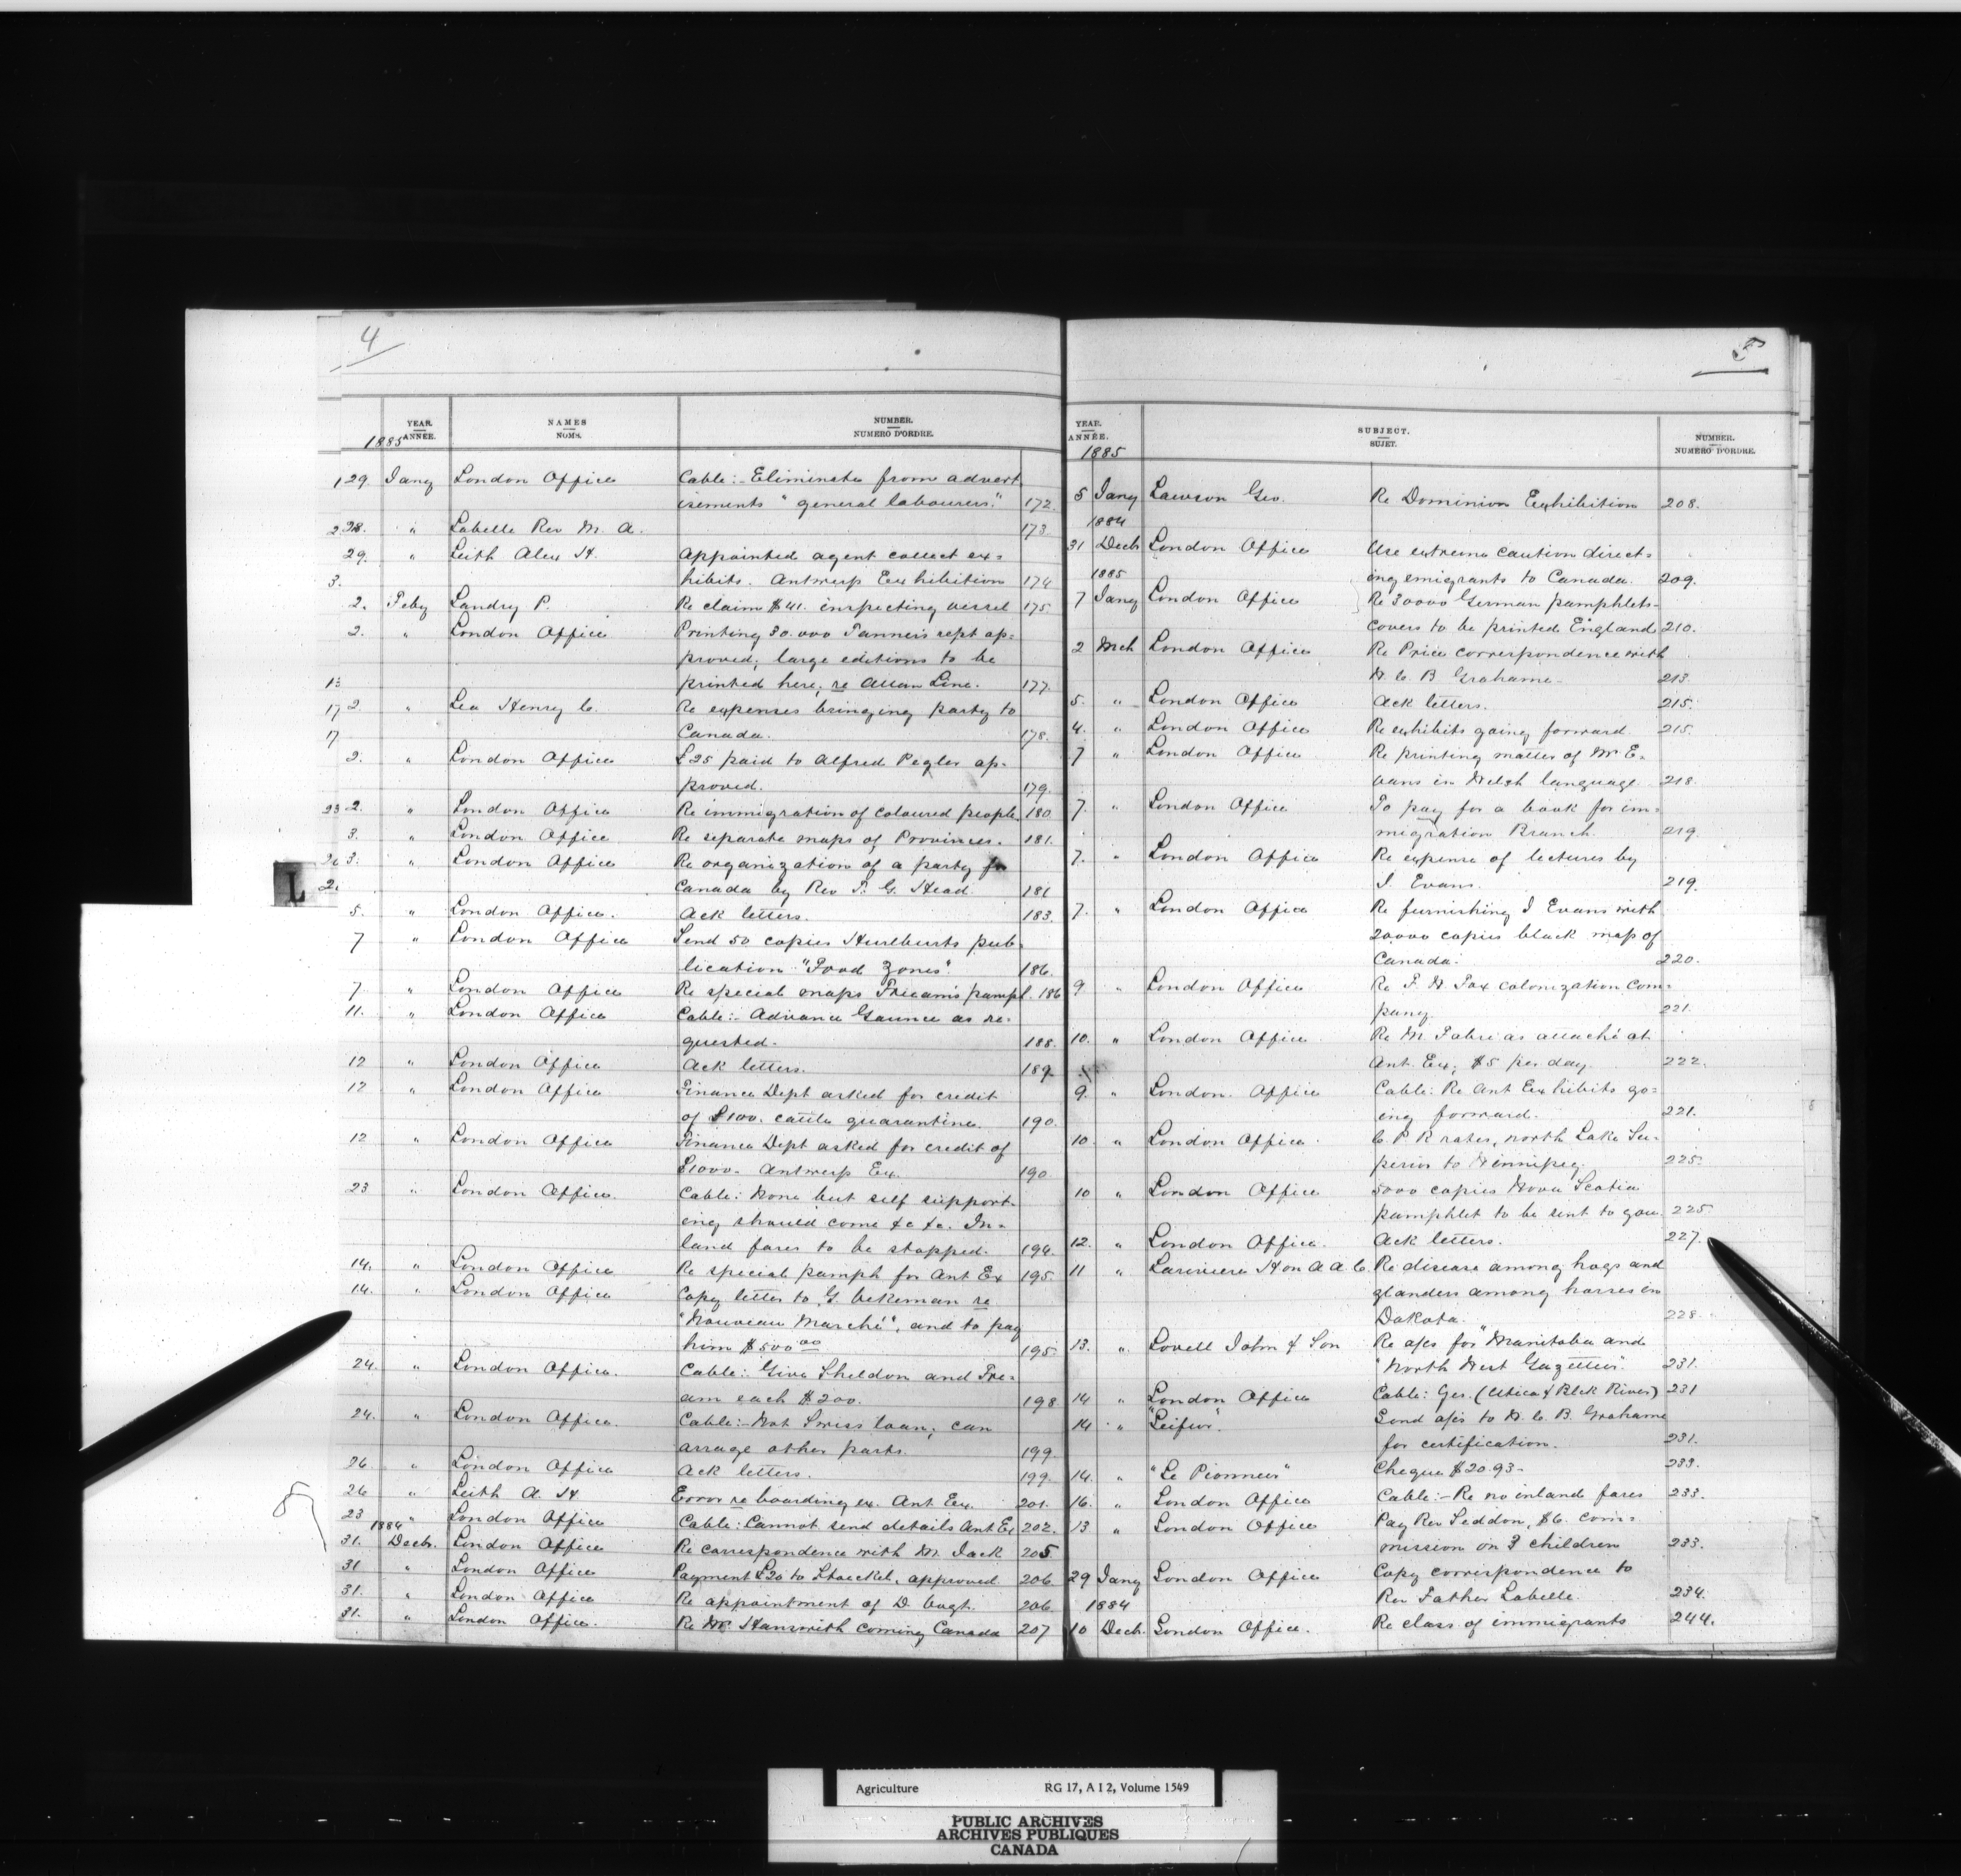 4
YEAR. ANNÉE. NAMES NOMS. NUMBER. NUMERO D'ORDRE.
1885
29. Jany London Office Cable:- Eliminate from advert
isements "general labourers." 172.
28. " Labelle Rev M. A. 173.
29. " Leith Alex H. Appointed agent collect ex=
hibits. Antwerp Exhibition 174
2. Feby Landry P. Re claim $41. inspecting vessel 175.
2. " London Office Printing 30.000 Tanner's rept ap=
proved; large editions to be
printed here, re Allan Line. 177.
2. " Lea Henry C. Re expenses bringing party to
Canada. 178.
2. " London Office £25 paid to Alfred Pegler ap=
proved. 179.
2. " London Office Re immigration of coloured people 180
3. " London Office Re separate maps of Provinces. 181.
3. " London Office Re organization of a party for
Canada by Rev T. G. Head. 181
5. " London Office. Ack letters. 183.
7 " London Office Send 50 copies Hurlburts pub=
lication "Food Zones". 186.
7 " London Office Re special maps Fream's pampl. 186
11. " London Office Cable:- Advance Gaunce as re=
quested. 188.
12 " London Office Ack letters. 189.
12 " London Office Finance Dept asked for credit
of £100. cattle quarantine. 190
12 " London Office Finance Dept asked for credit of
£1000. Antwerp Ex. 190
23 " London Office. Cable: None but self support=
ing should come &c &c. In=
land fares to be stopped. 194.
14. " London Office Re special pamph for Ant Ex 195.
14. " London Office Copy letter to G. Bekeman re
"Nouveau Marché", and to pay
him $500 00 195.
24. " London Office. Cable:- Give Sheldon and Fre=
am each $200. 198
24. " London Office. Cable:- Not Swiss loan; can
arrage other parts. 199.
26. " London Office Ack letters. 199.
26 " Leith A. H. Error re boarding ex. Ant. Ex. 201.
23 " London Office Cable: Cannot send details Ant. Ex 202.
1884
31. Decb. London Office Re correspondence with M. Jack 205
31 " London Office Payment £20 to Stoeckel, approved 206
31. " London Office Re appointment of D. 206
31. " London Office. Re Mr. Hansmith coming Canada 207
5
YEAR. ANNÉE. SUBJECT. SUJET. NUMBER. NUMERO D'ORDRE.
1885
5 Jany Lawson Geo. Re Dominion Exhibition 208.
1884
31 Decb London Office Use extreme caution direct=
ing emigrants to Canada. 209.
1885
7 Jany London Office Re 30000 German pamphlets-
covers to be printed England 210.
2 Mch London Office Re Price correspondence with
W. C. B Grahame- 213.
5. " London Office Ack letters. 215.
4. " London Office Re exhibits going forward. 215.
7 " London Office Re printing matter of Mr E=
vans in Welsh language 218.
7. " London Office To pay for a book for im=
migration Branch. 219.
7. " London Office Re expense of lectures by
J. Evans. 219.
7. " London Office Re furnishing J Evans with
20000 copies black map of
Canada. 220.
9 " London Office Re F. W Fox colonization com=
pany. 221.
10. " London Office. Re M. Fabre as attaché at
Ant. Ex; $5 per day. 222.
9. " London Office Cable: Re Ant Exhibits go=
ing forward. 221.
10. " London Office. C. P R rates, north Lake Su=
perior to Winnipeg. 225.
10 " London Office 5000 copies Nova Scotia
pamphlet to be sent to you. 225.
12. " London Office. Ack letters. 227.
11 " Lariviere Hon A A C. Re disease among hogs and
glanders among horses in
Dakota. 228
13. " Lovell John & Son Re a/cs for "Manitoba and
"North West Gazetteer". 231.
14 " London Office Cable: Yes. (Utica & Blck River) 231
14 " "Leifur". Send a/cs to W. C. B. Grahame
for certification. 231.
14. " "Le Pionnier" Cheque $20.93- 233.
16. " London Office Cable:- Re no inland fares 233.
13 " London Office Pay Rev Seddon, $6. com=
mission on 3 children 233.
29 Jany London Office Copy correspondence to
Rev Father Labelle. 234.
1884
10 Decb. London Office. Re class of immigrants 244.
L
Agriculture RG 17, A I 2, Volume 1549
PUBLIC ARCHIVES
ARCHIVES PUBLIQUES
CANADA